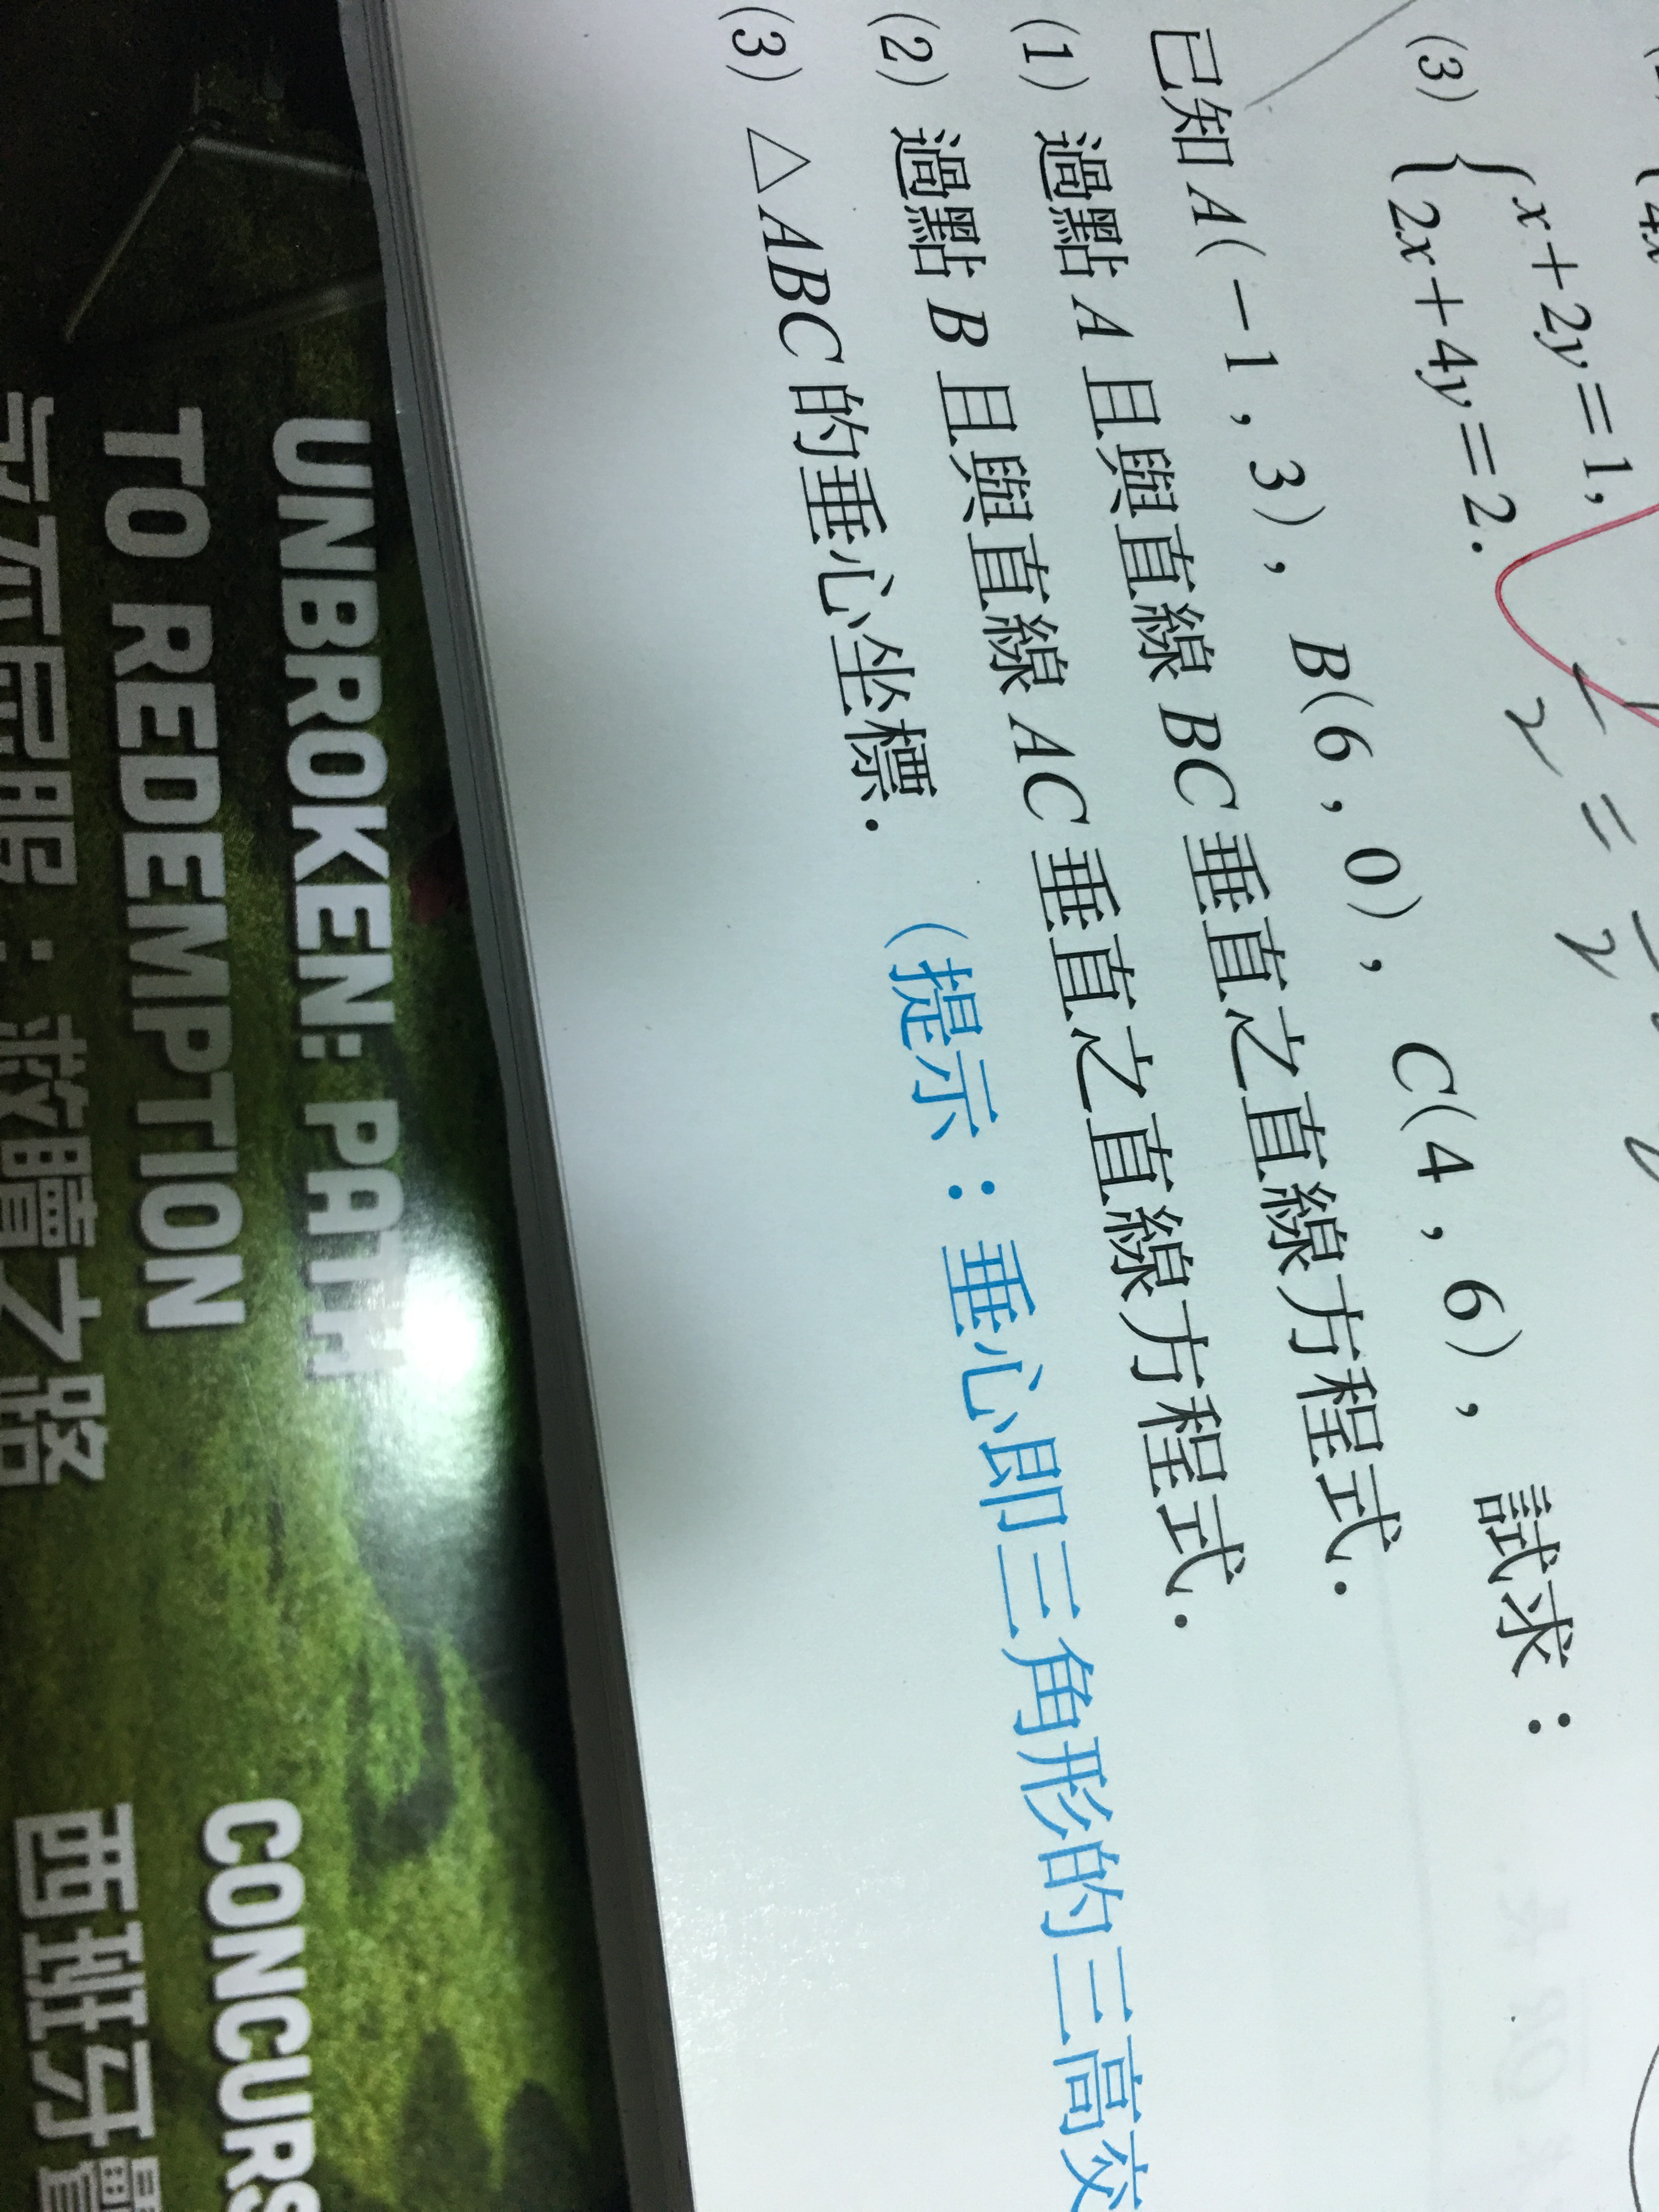 (3) { x+2y=1,
2x+4y=2.
已知 A(-1,3), B(6,0), C(4,6), 試求:
(1) 過點 A 且與直線 BC 垂直之直線方程式.
(2) 過點 B 且與直線 AC 垂直之直線方程式.
(3) △ABC 的垂心坐標. (提示:垂心即三角形的三高交
UNBROKEN: PATH
TO REDEMPTION
救贖之路
CONCURS
西班牙